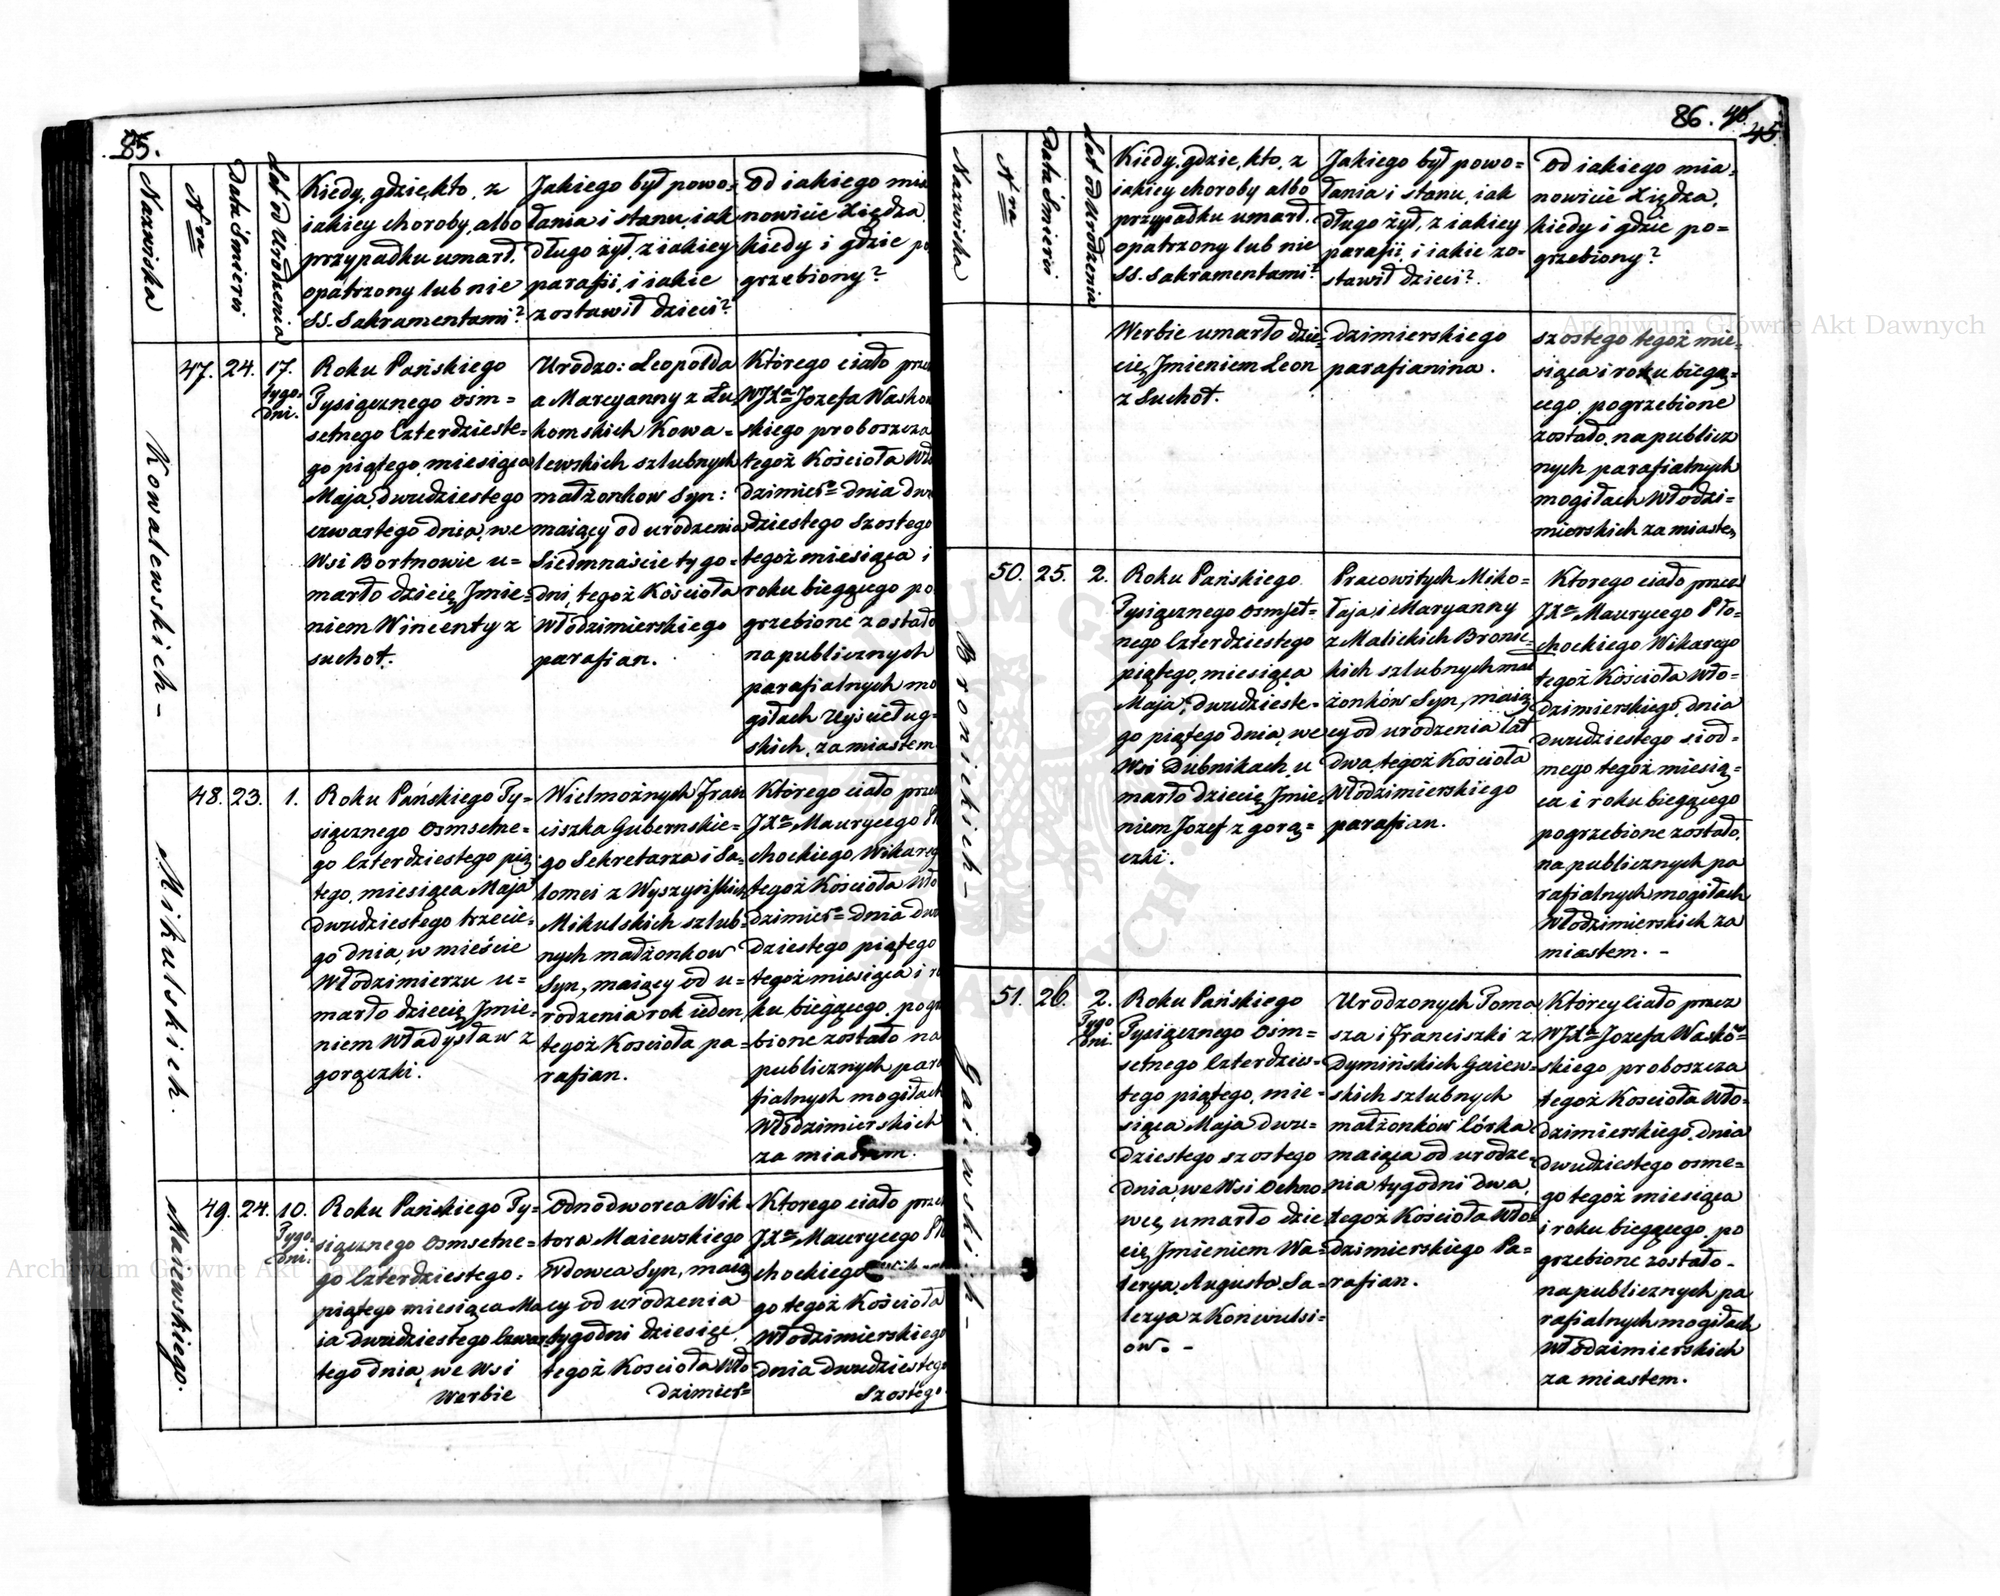 85.
Nazwiska
Nra
Data Śmierci
Lat od Urodzenia
Kiedy, gdzie, kto, z
iakiey choroby, albo
przypadku umarł,
opatrzony lub nie
SS. Sakramentami?
Jakiego był powo=
łania i stanu, iak
długo żył, z iakiey
parafii, i iakie
zostawił dzieci?
Od iakiego mia
nowicie Xiędza,
kiedy i gdzie po
grzebiony?
Kowalewskich -
47.
24.
17.
tygo=
dni.
Roku Pańskiego
Tysiącznego osm=
setnego Czterdzieste=
go piątego, miesiąca
Maja, dwudziestego
czwartego dnia, we
Wsi Bortnowie u=
marło dziecię Jmie=
niem Wincenty z
suchot.
Urodzo: Leopolda
a Marcyanny z Łu=
komskich Kowa=
lewskich szlubnych
małżonkow Syn:
maiący od urodzenia
Siedmnaście tygo=
dni, tegoż Kościoła
Włodzimierskiego
parafian.
Którego ciało prze
WJXa Jozefa Wasko
skiego proboszcza
tegoż Kościoła Wło
dzimier= dnia dwu
dziestego szostego
tegoż miesiąca i
roku bieżącego po
grzebione zostało
na publicznych
parafialnych mo
giłach Uyściług=
skich, za miastem
Mikulskich.
48.
23.
1.
Roku Pańskiego Ty=
siącznego osmsetne=
go Czterdziestego pią
tego, miesiąca Maja
dwudziestego trzecie=
go dnia, w mieście
Włodzimierzu u=
marło dziecię Jmie=
niem Władysław z
gorączki.
Wielmożnych Fran
ciszka Gubernskie=
go Sekretarza i Sa=
lomei z Wyszyńskich
Mikulskich szlub=
nych małżonkow
Syn, maiący od u=
rodzenia rok ieden,
tegoż Kościoła pa=
rafian.
Którego ciało prze
JXa Maurycego Pł
chockiego, Wikareg
tegoż Kościoła Wło
dzimier= dnia dwu
dziestego piątego
tegoż miesiąca i ro
ku bieżącego, pogrz
bione zostało na
publicznych para
fialnych mogiłach
Włodzimierskich
za miastem.
Maiewskiego.
49.
24.
10.
Tygo=
dni.
Roku Pańskiego Ty=
siącznego osmsetne=
go Czterdziestego=
piątego miesiąca Ma
ia dwudziestego Czwar
tego dnia, we Wsi
Werbie
Odnodworca Wik=
tora Maiewskiego
Wdowca Syn, maią
cy od urodzenia
tygodni dziesięć,
tegoż Kościoła Wło
dzimier=
Ktorego ciało prze
JXa Maurycego Pł
chockiego
go tegoż Kościoła
Włodzimierskiego
dnia dwudziestego
Szostego
86. 45.
Nazwiska
Nra
Data Śmierci
Lat od Urodzenia
Kiedy, gdzie, kto, z
iakiey choroby albo
przypadku umarł,
opatrzony lub nie
SS. Sakramentami?
Jakiego był powo=
łania i stanu, iak
długo żył, z iakiey
parafii, i iakie zo=
stawił dzieci?
Od iakiego mia=
nowicie Xiędza,
kiedy i gdzie po=
grzebiony?
Werbie umarło dzie=
cię, Jmieniem Leon
z Suchot.
dzimierskiego
parafianina.
szostego tegoż mie=
siąca i roku bieżą=
cego, pogrzebione
zostało, na publicz
nych parafialnych
mogiłach Włodzi=
mierskich za miaste
Bronickich -
50.
25.
2.
Roku Pańskiego
Tysiącznego osmset=
nego Czterdziestego
piątego, miesiąca
Maja, dwudzieste=
go piątego dnia, we
Wsi Dubnikach, u
marło dziecię Jmie=
niem Jozef z gorą=
czki.
Pracowitych Miko=
łaja i Maryanny
z Malickich Bronic=
kich szlubnych mał
żonków Syn, maią
cy od urodzenia lat
dwa, tegoż Kościoła
Włodzimierskiego
parafian.
Ktorego ciało przez
JXa Maurycego Pło=
chockiego Wikarego
tegoż Kościoła Wło=
dzimierskiego, dnia
dwudziestego siod=
mego tegoż miesią=
ca i roku bieżącego
pogrzebione zostało,
na publicznych pa
rafialnych mogiłach
Włodzimierskich za
miastem. -
Gaiewskich -
51.
26.
2.
Tygo
dni.
Roku Pańskiego
Tysiącznego osm=
setnego Czterdzies=
tego piątego, mie=
siąca Maja dwu=
dziestego szostego
dnia, we Wsi Ochno=
wcę umarło dzie
cię, Jmieniem Wa=
lerya, Augusta, Sa=
lezya z Konwulsi=
ow. -
Urodzonych Toma
sza i Franciszki z
Dymińskich Gaiew=
skich szlubnych
małżonków Córka
maiąca od urodze=
nia tygodni dwa,
tegoż Kościoła Wło=
dzimierskiego Pa=
rafian.
Którey ciało przez
WJXa Jozefa Wasko=
skiego proboszcza
tegoż Kościoła Wło=
dzimierskiego, dnia
dwudziestego osme=
go tegoż miesiąca
i roku bieżącego, po
grzebione zostało -
na publicznych pa
rafialnych mogiłach
Włodzimierskich
za miastem.
Archiwum Główne Akt Dawnych
Archiwum Główne Akt Dawnych